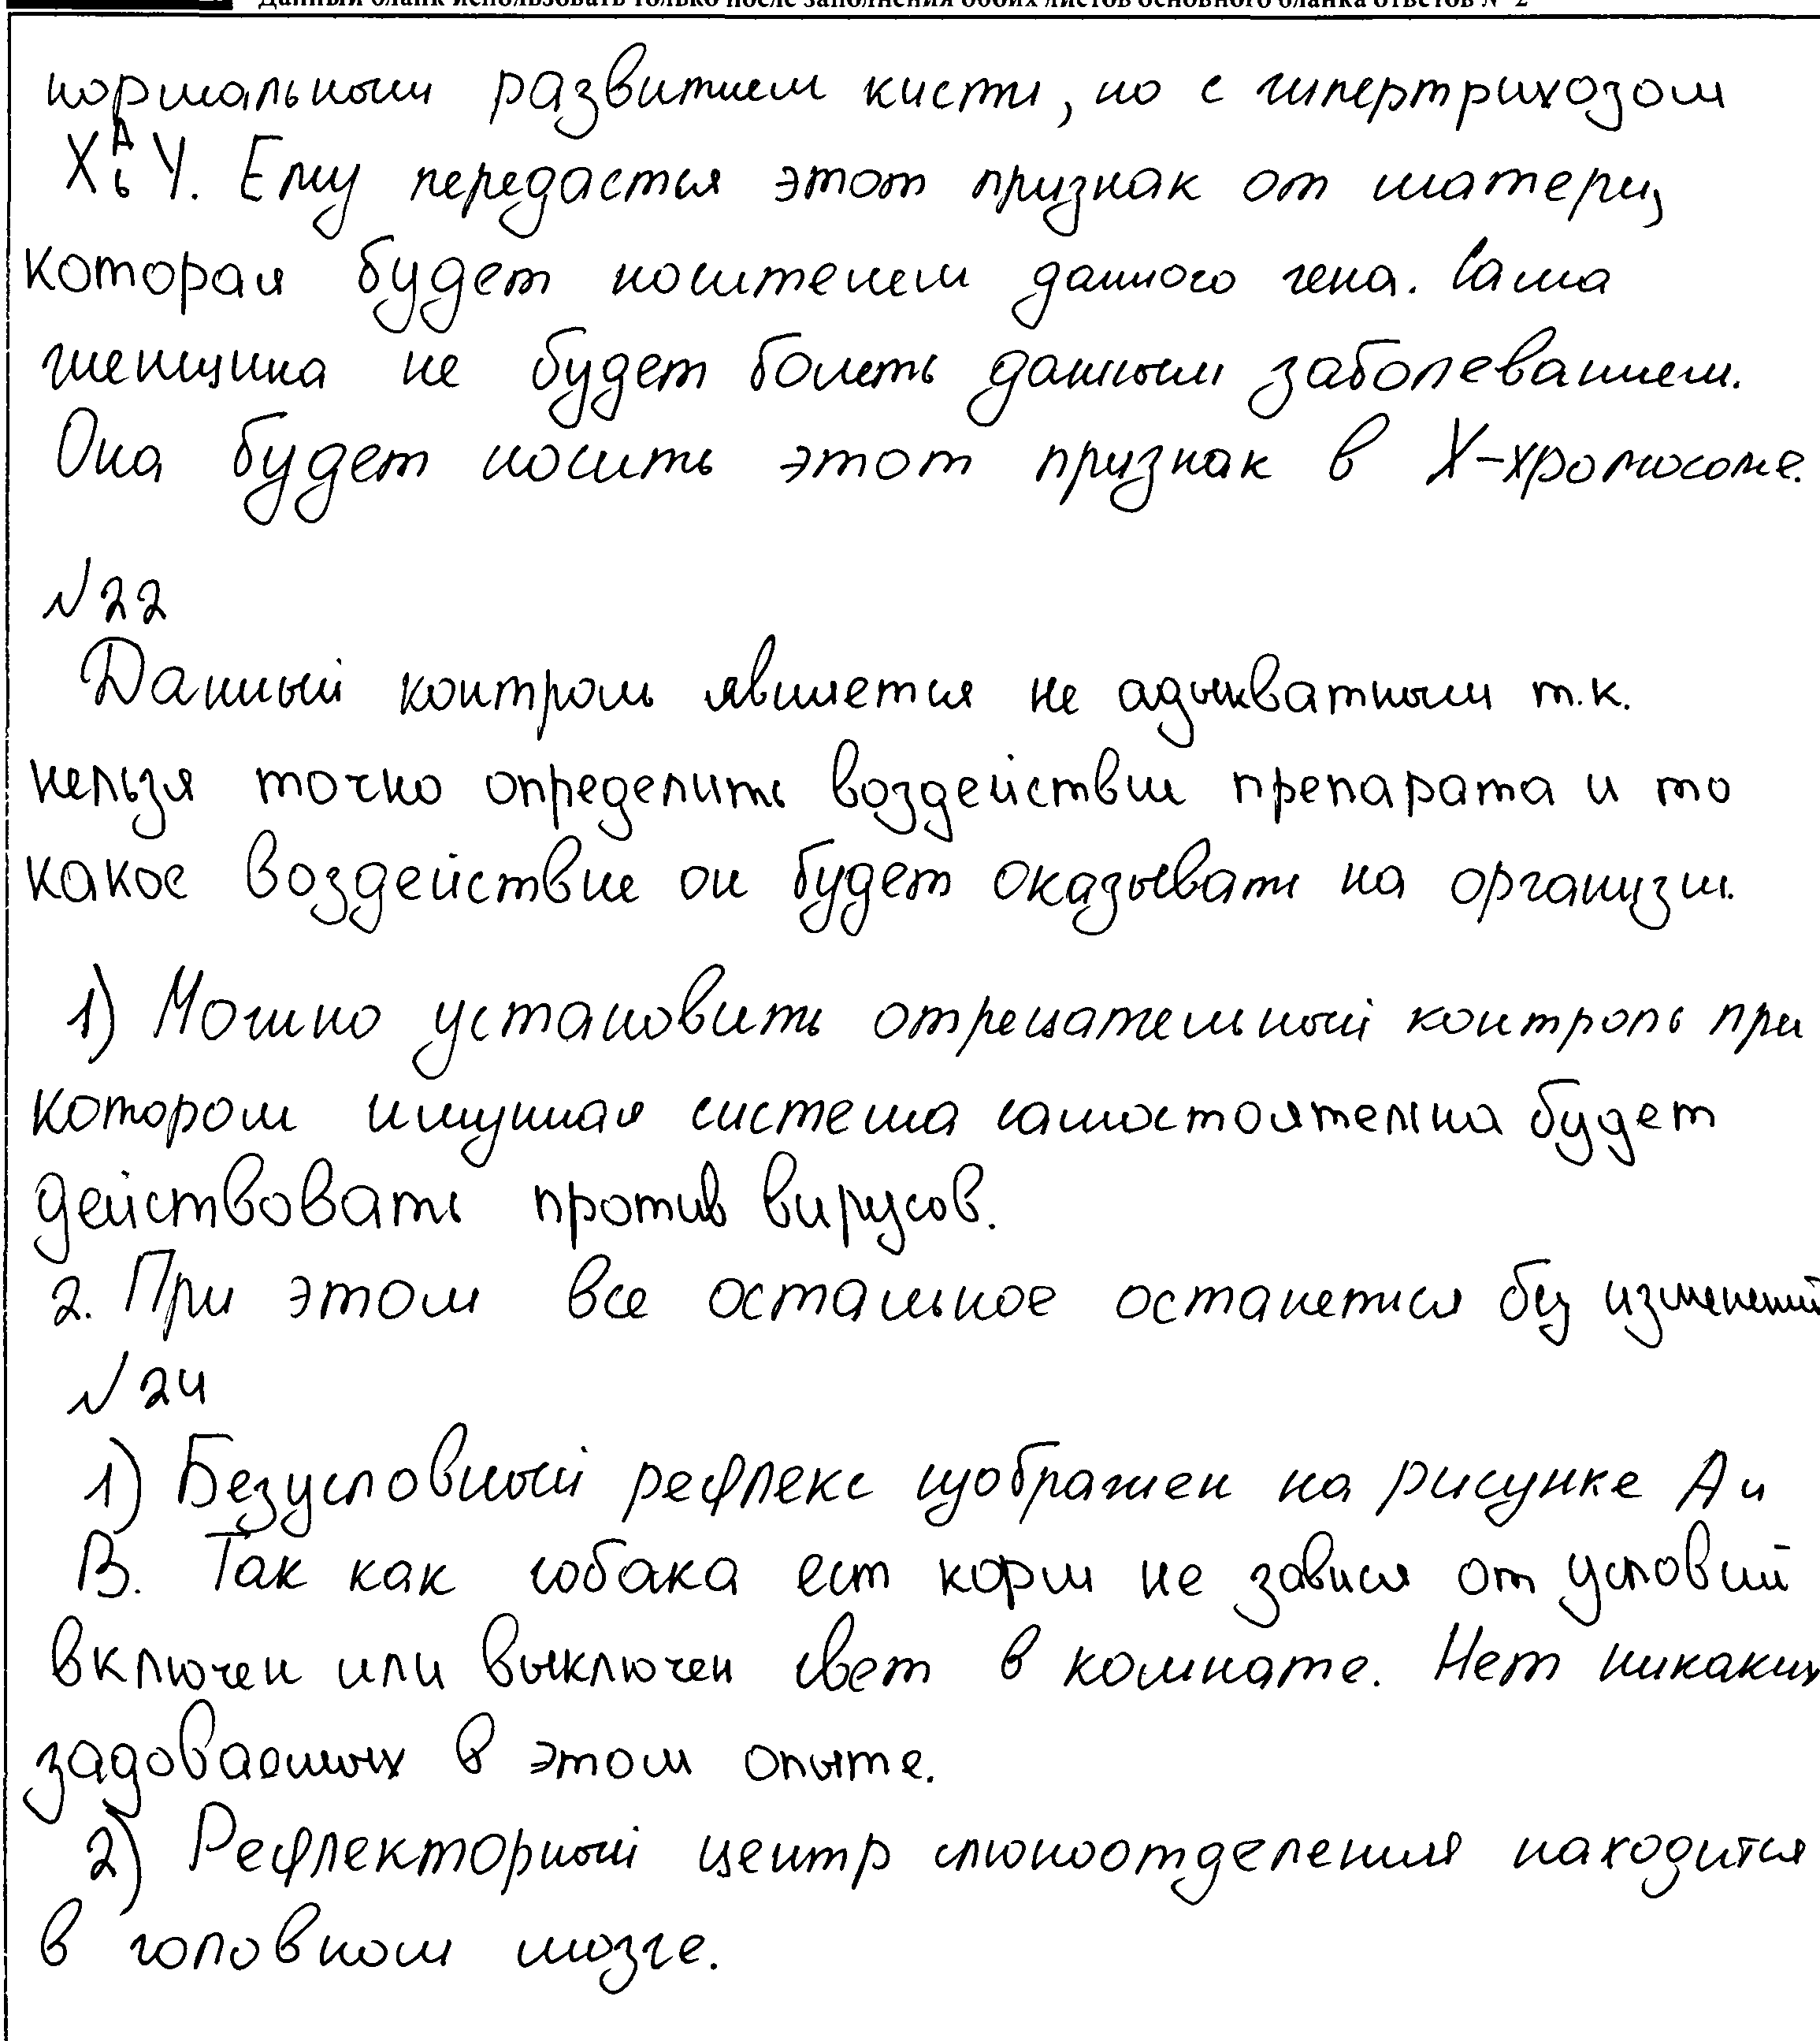 Данный бланк использовать только после заполнения обоих листов основного бланка ответов № 2
нормальным развитием кисти, но с гипертрихозом
XᴬᵦY. Ему передастся этот признак от матери,
которая будет носителем данного гена. Сама
женщина не будет болеть данным заболеванием.
Она будет носить этот признак в X-хромосоме.
№22
Данный контроль является не адыкватным т.к.
нельзя точно определить воздействие препарата и то
какое воздействие он будет оказывать на организм.
1) Можно установить отрецательный контроль при
котором имунная система самостоятельна будет
действовать против вирусов.
2. При этом все остальное останется без изменений
№24
1) Безусловный рефлекс изображен на рисунке А и
В. Так как собака ест корм не завися от условий
включен или выключен свет в комнате. Нет никаких
задоваемых в этом опыте.
2) Рефлекторный центр слюноотделения находится
в головном мозге.